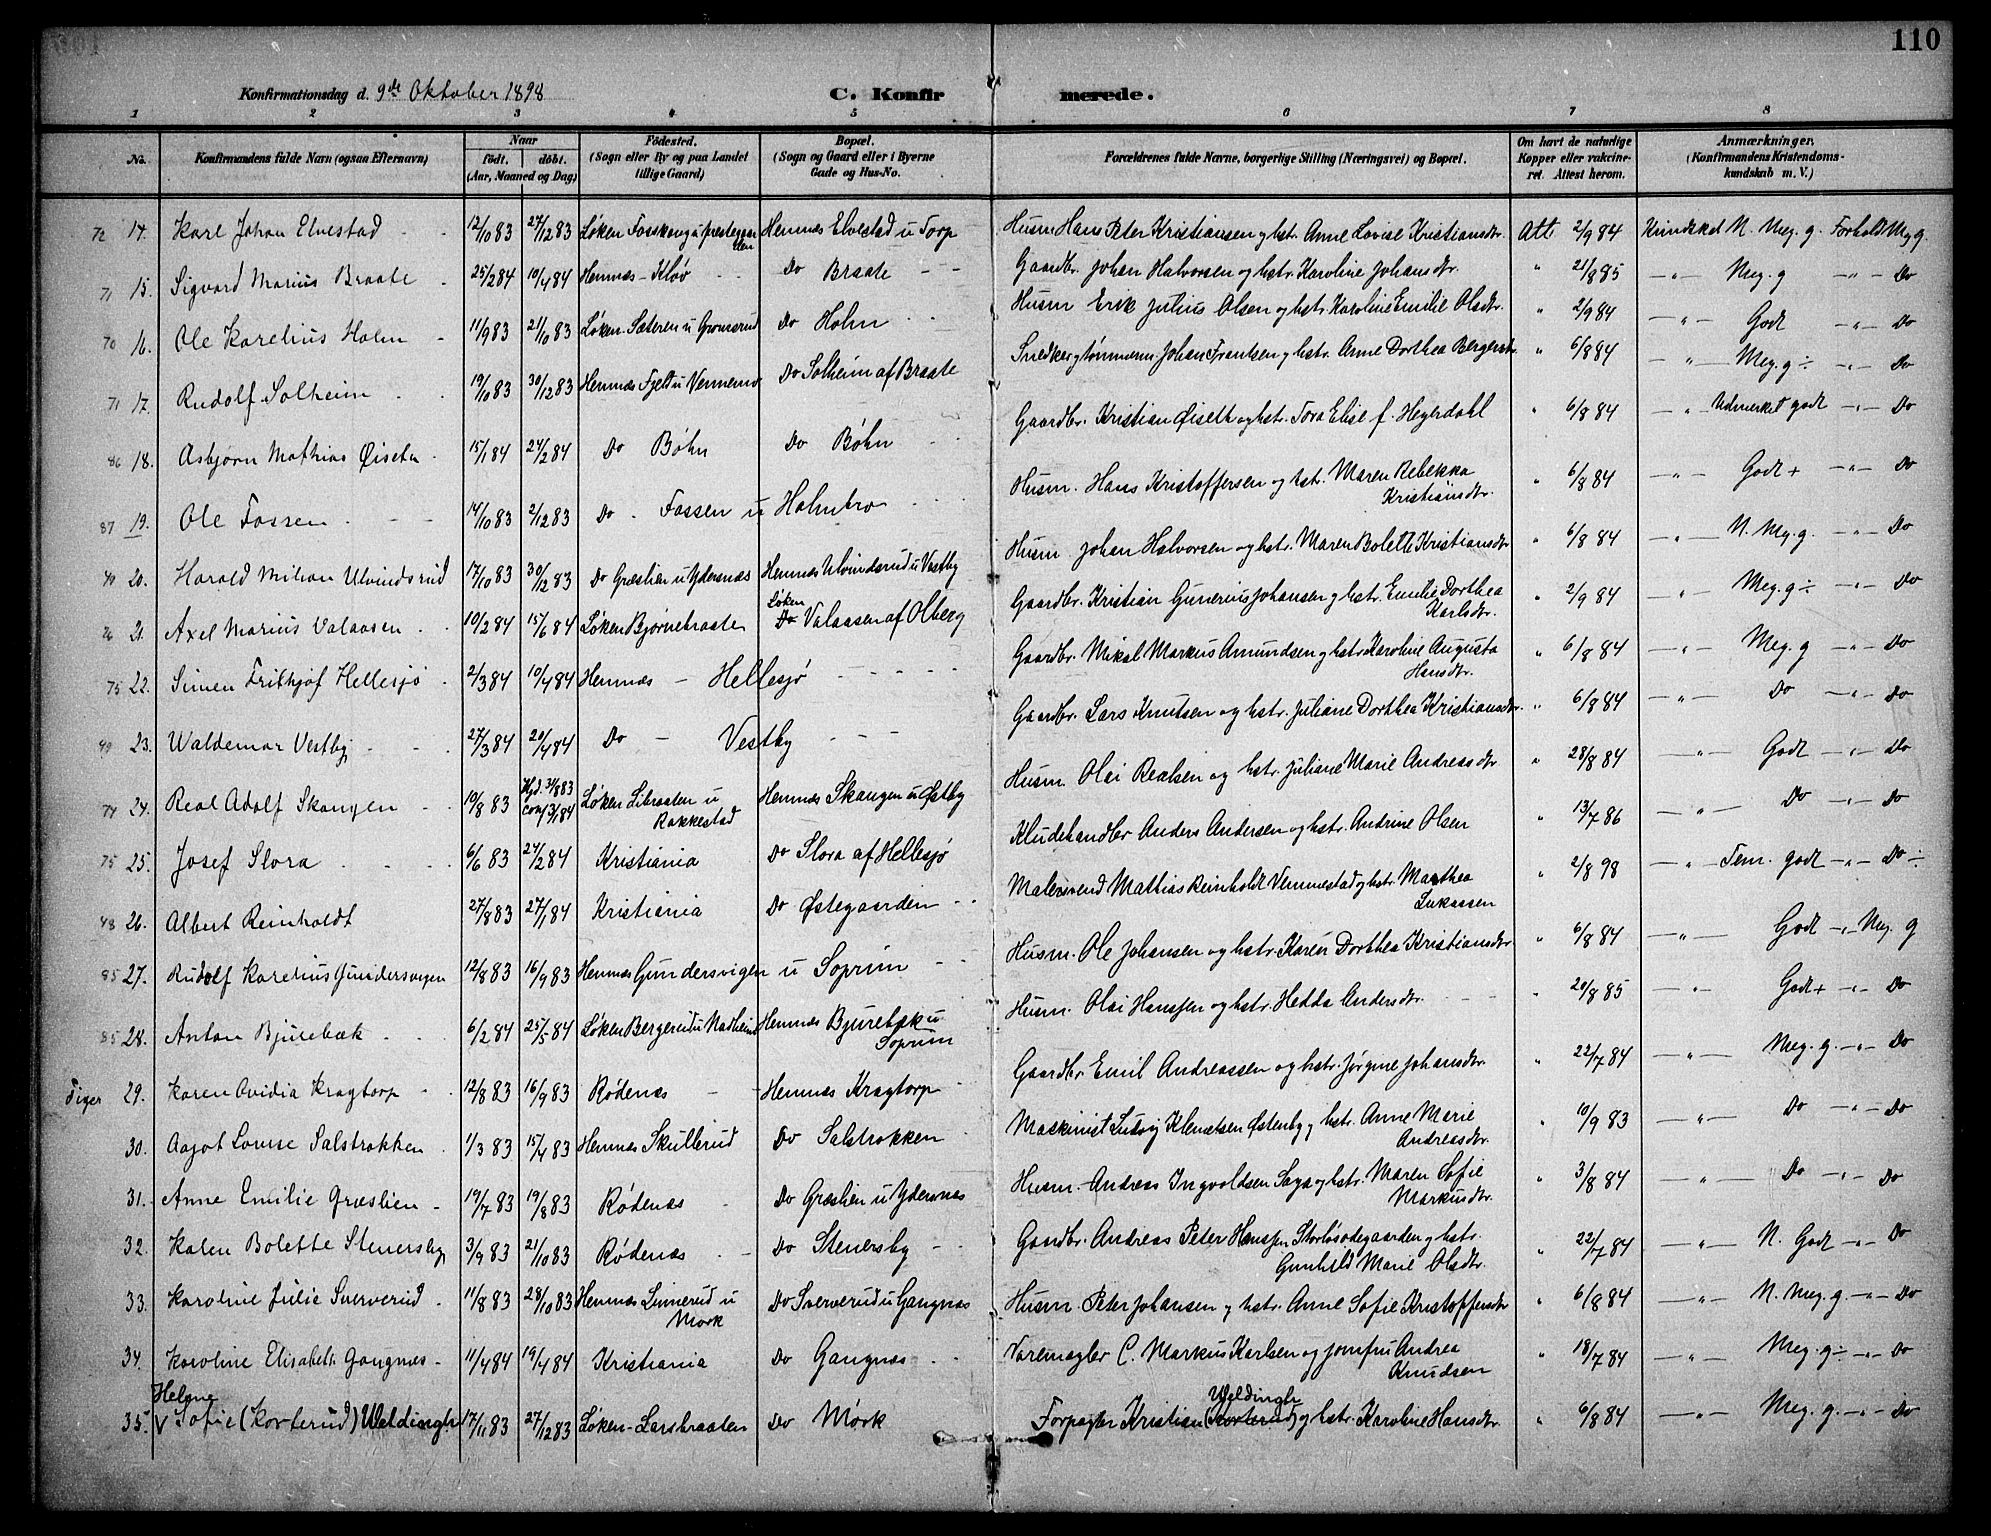 110
Konfirmationsdag d. 9de Oktober 1898 C. Konfirmerede.
1 2 3 4 5 6 7 8
No. Konfirmandens fulde Navn (ogsaa Efternavn) Naar født. døbt. (Aar, Maaned og Dag) Fødested. (Sogn eller By og paa Landet tillige Gaard) Bopæl. (Sogn og Gaard eller i Byerne Gade og Hus-No. Forældrenes fulde Navne, borgerlige Stilling (Næringsvei) og Bopæl. Om havt de naturlige Kopper eller vakcineret. Attest herom. Anmærkninger. (Konfirmandens Kristendomskundskab m. V.)
72 14. Karl Johan Elvestad 12/10 83 27/12 83 Løken Fosskaug u prestegaarden Hemnæs Elvestad u Torp Husm Hans Peter Kristiansen og hst. Anne Lovise Kristiansdtr. Att. 2/9 84 Kundskab N. Meg. g. Forhold Meg g.
71 15. Sigvard Marius Braate 25/2 84 10/4 84 Hemnæs - Kløv Do Braate Gaardbr. Johan Halvorsen og hst. Karoline Johansdtr. " 21/8 85 — " — Meg. g — " — Do
70 16. Ole Karelius Holm 11/9 83 21/10 83 Løken Sæteren u Gromsrud Do Holm Husm Erik Julius Olsen og hst. Karoline Emilie Olsdtr. " 2/9 84 — " — Godt — " — Do
71 17. Rudolf Solheim 19/10 83 30/12 83 Hemnæs Fjeld u Vennemo Do Solheim af Braate Snedker og tømmerm. Johan Frantsen og hst. Anne Dorthea Bergersdtr. " 6/8 84 — " — Meg. g ÷ — " — Do
86 18. Asbjørn Mathias Øiseth 15/1 84 24/2 84 Do Bøhn Do Bøhn Gaardbr. Kristian Øiseth og hst. Tora Elise f. Heyerdahl " 6/8 84 — " — Udmerket godt — " — Do
87 19. Ole Fossen 14/10 83 2/12 83 Do Fossen u Holmbro Husm. Hans Kristoffersen og hst. Maren Rebekka Kristiansdtr. " 6/8 84 — " — Godt + — " — Do
40 20. Harald Milian Ulvindsrud 17/10 83 30/12 83 Do Græslien u Ydersnæs Hemnæs Ulvindsrud u Vestby Husm Johan Halvorsen og hst. Maren Bolette Kristiansdtr " 6/8 84 — " — N. Meg. g. — " — Do
26 21. Axel Marius Valaasen 10/2 84 15/6 84 Løken Bjørnebraaten Løken Do Valaasen af Olberg Gaardbr. Kristian Gunerius Johansen og hst. Emilie Dorthea Karlsdtr. " 2/9 84 — " — Meg. g ÷ — " — Do
75 22. Simen Frithjof Hellesjø 2/3 84 10/4 84 Hemnæs — Hellesjø Gaardbr. Mikal Markus Amundsen og hst. Karoline Augusta Hansdtr. " 6/8 84 — " — Meg. g — " — Do
49 23. Waldemar Vestby 27/3 84 20/4 84 Do — Vestby Gaardbr. Lars Knutsen og hst. Juliane Dorthea Kristiansdtr. " 6/8 84 — " — Do — " — Do
74 24. Real Adolf Skangen 10/8 83 Hjd. 31/8 83 conf 13/1 84 Løken Libraaten u Rakkestad Hemnæs Skangen u Østby Husm. Olai Realsen og hst. Juliane Marie Andreasdtr " 28/8 84 — " — Godt — " — Do
75 25. Josef Slora 6/6 83 24/2 84 Kristiania Do Slora af Hellesjø Kludehandler Anders Andersen og hst. Andrine Olsen " 13/7 86 — " — Do — " — Do
48 26. Albert Reinholdt 27/8 83 27/1 84 Kristiania Do Østegaarden Malersvend Mathias Reinholdt Vennestad og hst. Marthea Lukassen " 2/8 98 — " — Tem. godt — " — Do ÷
85 27. Rudolf Karelius Gundersvigen 12/8 83 16/9 83 Hemnæs Gundersvigen u Soprim Husm. Ole Johansen og hst. Karen Dorthea Kristiansdtr " 6/8 84 — " — Godt — " Meg. g
85 28. Anton Bjurebæk 6/2 84 25/5 84 Løken Bergerud u Nadheim Hemnæs Bjurebæk u Soprim Husm. Olai Hanssen og hst. Hedda Andersdtr. " 20/8 85 — " — Godt + — " — Do
Piger 29. Karen Ovidia Kragtorp 12/8 83 16/9 83 Rødenæs Hemnæs Kragtorp Gaardbr. Emil Andreassen og hst. Jørgine Johansdtr. " 22/7 84 — " — Meg. g. — " — Do
30. Aagot Lovise Salstrokken 1/3 83 15/4 83 Hemnæs Skullerud Do Salstrokken Maskinist Ludvig Klemetsen Østenby og hst. Anne Marie Andreasdtr. " 10/9 83 — " — Do — " — Do
31. Anne Emilie Græslien 19/7 83 19/8 83 Rødenæs Do Græslien u Ydersnæs Husm. Andreas Ingvoldsen Saga og hst. Maren Sofie Markusdtr. " 3/8 84 — " — Do — " — Do
32. Kalen Bolette Stenersby 3/9 83 21/10 83 Rødenæs Do Stenersby Gaardbr. Andreas Peter Hanssen Storbsødegaarden og hst. Gunhild Marie Olsdtr. " 22/7 84 — " — N. Godt — " — Do
33. Karoline Julie Sververud 11/8 83 28/10 83 Hemnæs Linnerud u Mørk Do Sververud u Gangnæs Husm. Peter Johansen og hst. Anne Sofie Kristoffersdtr " 6/8 84 — " — N. Meg. g. — " — Do
34. Karoline Elisabeth Gangnæs 11/4 84 19/4 84 Kristiania Do Gangnæs Varemægler C. Markus Karlsen og jomfru Andrea Knudsen " 18/7 84 — " — Meg. g ÷ — " — Do
35. Helene Sofie (Korterud) Weldingh 17/11 83 27/12 83 Løken - Larsbraaten Do Mørk Forpagter Kristian Weldingh (Korterud) og hst. Karoline Hansdtr. " 6/8 84 — " — Meg. g. — " — Do